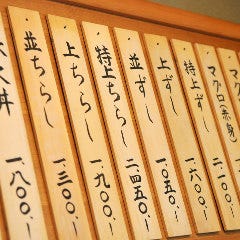 マグロ(赤身) 二〇〇.-
特上ずし 二、一〇〇.-
上ずし 一、六〇〇.-
並ずし 一、〇五〇.-
特上ちらし 二、四五〇.-
上ちらし 一、九〇〇.-
並ちらし 一、三〇〇.-
丼 一、八〇〇.-